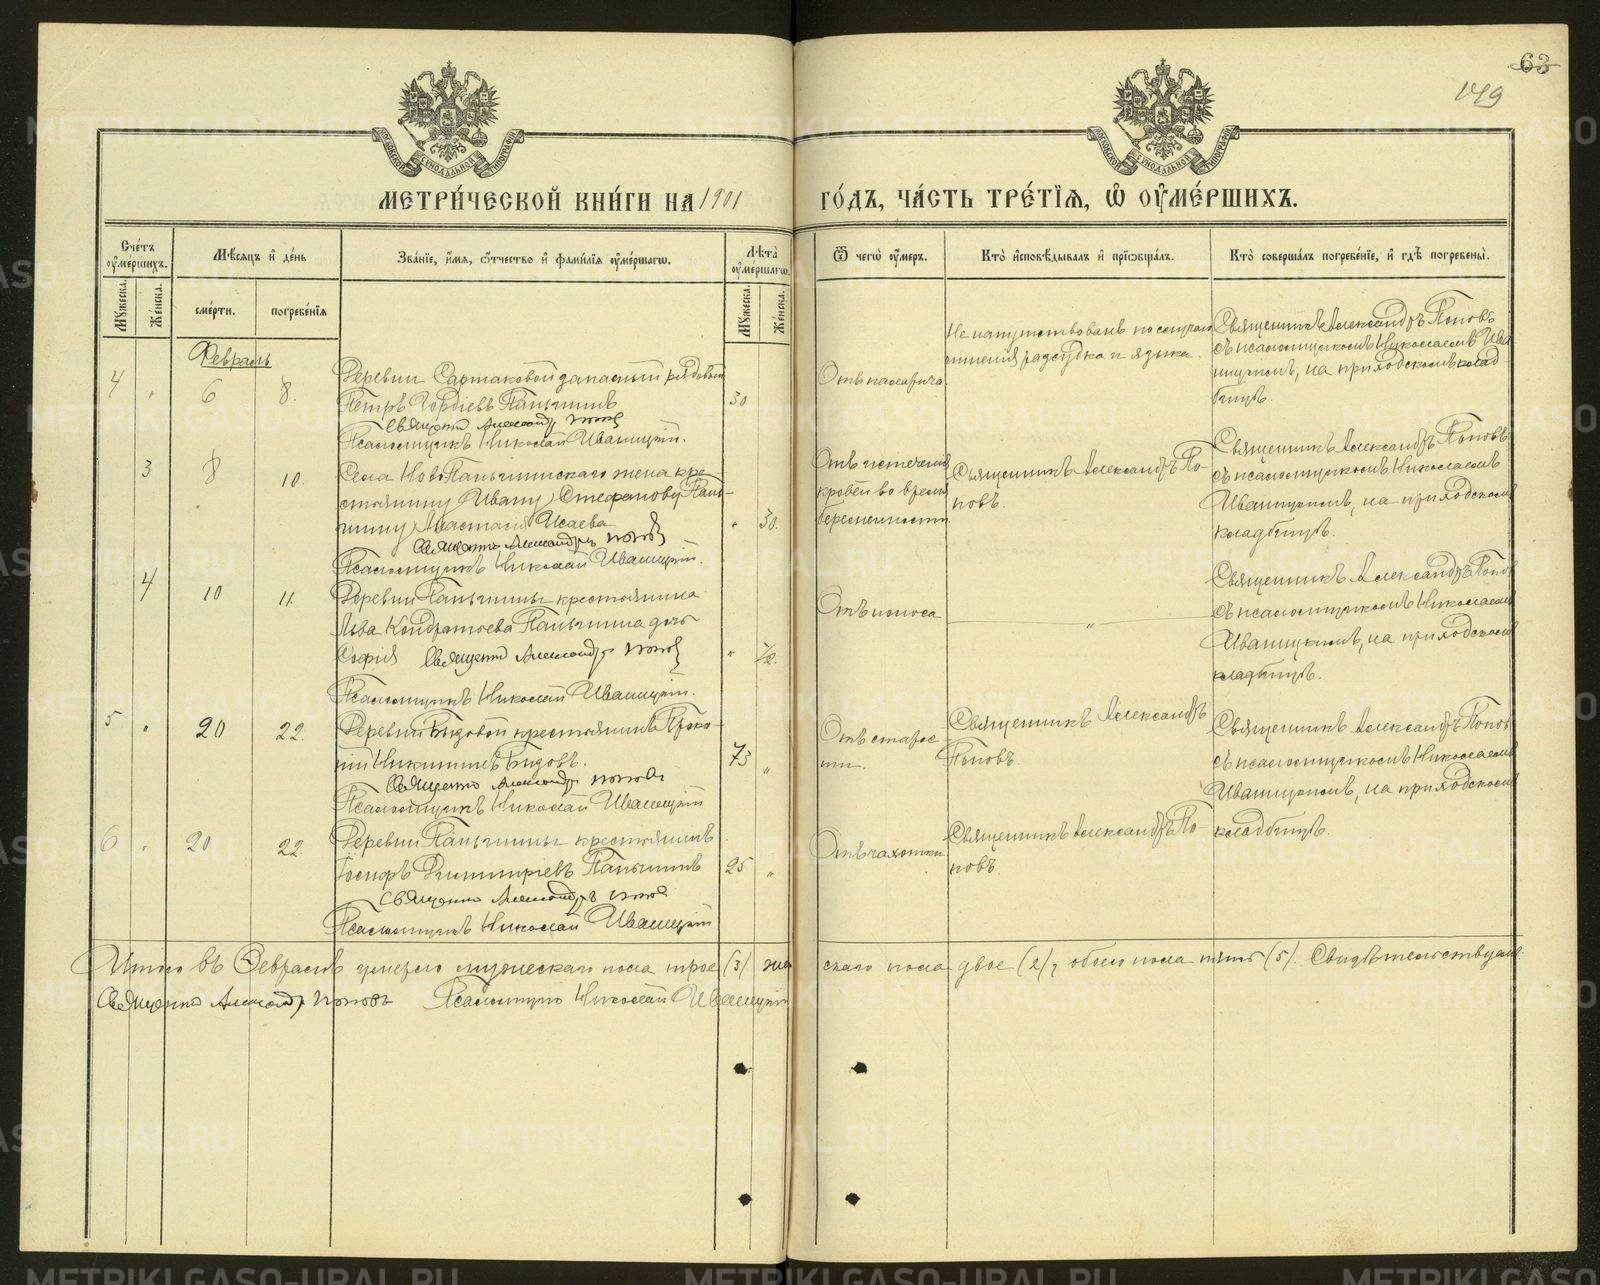 63
149
МОСКОВСКОЙ СѴНОДАЛЬНОЙ ТИПОГРАФІИ
МОСКОВСКОЙ СѴНОДАЛЬНОЙ ТИПОГРАФІИ
МЕТРИ́ЧЕСКОЙ КНИ́ГИ НА 1901 ГО́ДЪ, ЧА́СТЬ ТРЕ́ТІѦ, Ѡ҆ ОУ҆МЕ́РШИХЪ.
Сче́тъ оу҆ме́ршихъ.
Мꙋ́жеска.
Же́нска.
Мѣ́сѧцъ и҆ де́нь
сме́рти.
погребе́нїѧ
Зва́нїе, и҆́мѧ, ѻ҆́тчество и҆ фами́лїѧ оу҆ме́ршагѡ.
Лѣ́та оу҆ме́ршагѡ.
Мꙋ́жеска.
Же́нска.
Ѿ чегѡ̀ оу҆́меръ.
Кто̀ и҆сповѣ́дывалъ и҆ прїѡбща́лъ.
Кто̀ соверша́лъ погребе́нїе, и҆ гдѣ̀ погребены̀.
Февраль
4 " 6 8.
Деревни Сартаковой запасный рядовой
Петръ Гордѣевъ Паньшинъ
30
Священникъ Александръ Поповъ
Псаломщикъ Николай Иваницкій.
Отъ паралича
Не напутствованъ по случаю
лишенія разсудка и языка.
Священникъ Александръ Поповъ
съ псаломщикомъ Николаемъ Ива
ницкимъ, на приходскомъ клад
бищѣ.
3 8 10.
Села Ново-Паньшинскаго жена кре-
стьянину Ивану Стефанову Пань-
шину Анастасія Исаева
" 30.
Священникъ Александръ Поповъ
Псаломщикъ Николай Иваницкій.
Отъ истеченія
кровей во время
беременности
Священникъ Александръ По-
повъ.
Священникъ Александръ Поповъ
съ псаломщикомъ Николаемъ
Иваницкимъ, на приходскомъ
кладбищѣ.
4 10 11.
Деревни Паньшины крестьянина
Льва Кондратьева Паньшина дочь
Софія Священникъ Александръ Поповъ
" ½.
Псаломщикъ Николай Иваницкій.
Отъ поноса
"
Священникъ Александръ Поповъ
съ псаломщикомъ Николаемъ
Иваницкимъ, на приходскомъ
кладбищѣ.
5 " 20 22.
Деревни Бызовой крестьянинъ Проко-
пій Никитинъ Бызовъ.
73 "
Священникъ Александръ Поповъ
Псаломщикъ Николай Иваницкій
Отъ старос
ти.
Священникъ Александръ
Поповъ.
Священникъ Александръ Поповъ
съ псаломщикомъ Николаемъ
Иваницкимъ, на приходскомъ
кладбищѣ.
6 " 20 22.
Деревни Паньшины крестьянинъ
Іосифъ Димитріевъ Паньшинъ
25 "
Священникъ Александръ Поповъ
Псаломщикъ Николай Иваницкій
Отъ чахотки
Священникъ Александръ По-
повъ.
Итого въ Февралѣ умерло мужескаго пола трое (3) жен скаго пола двое (2), обоего пола пять (5). Свидѣтельствуемъ:
Священникъ Александръ Поповъ Псаломщикъ Николай Иваницкій
METRIKI.GASO-URAL.RU